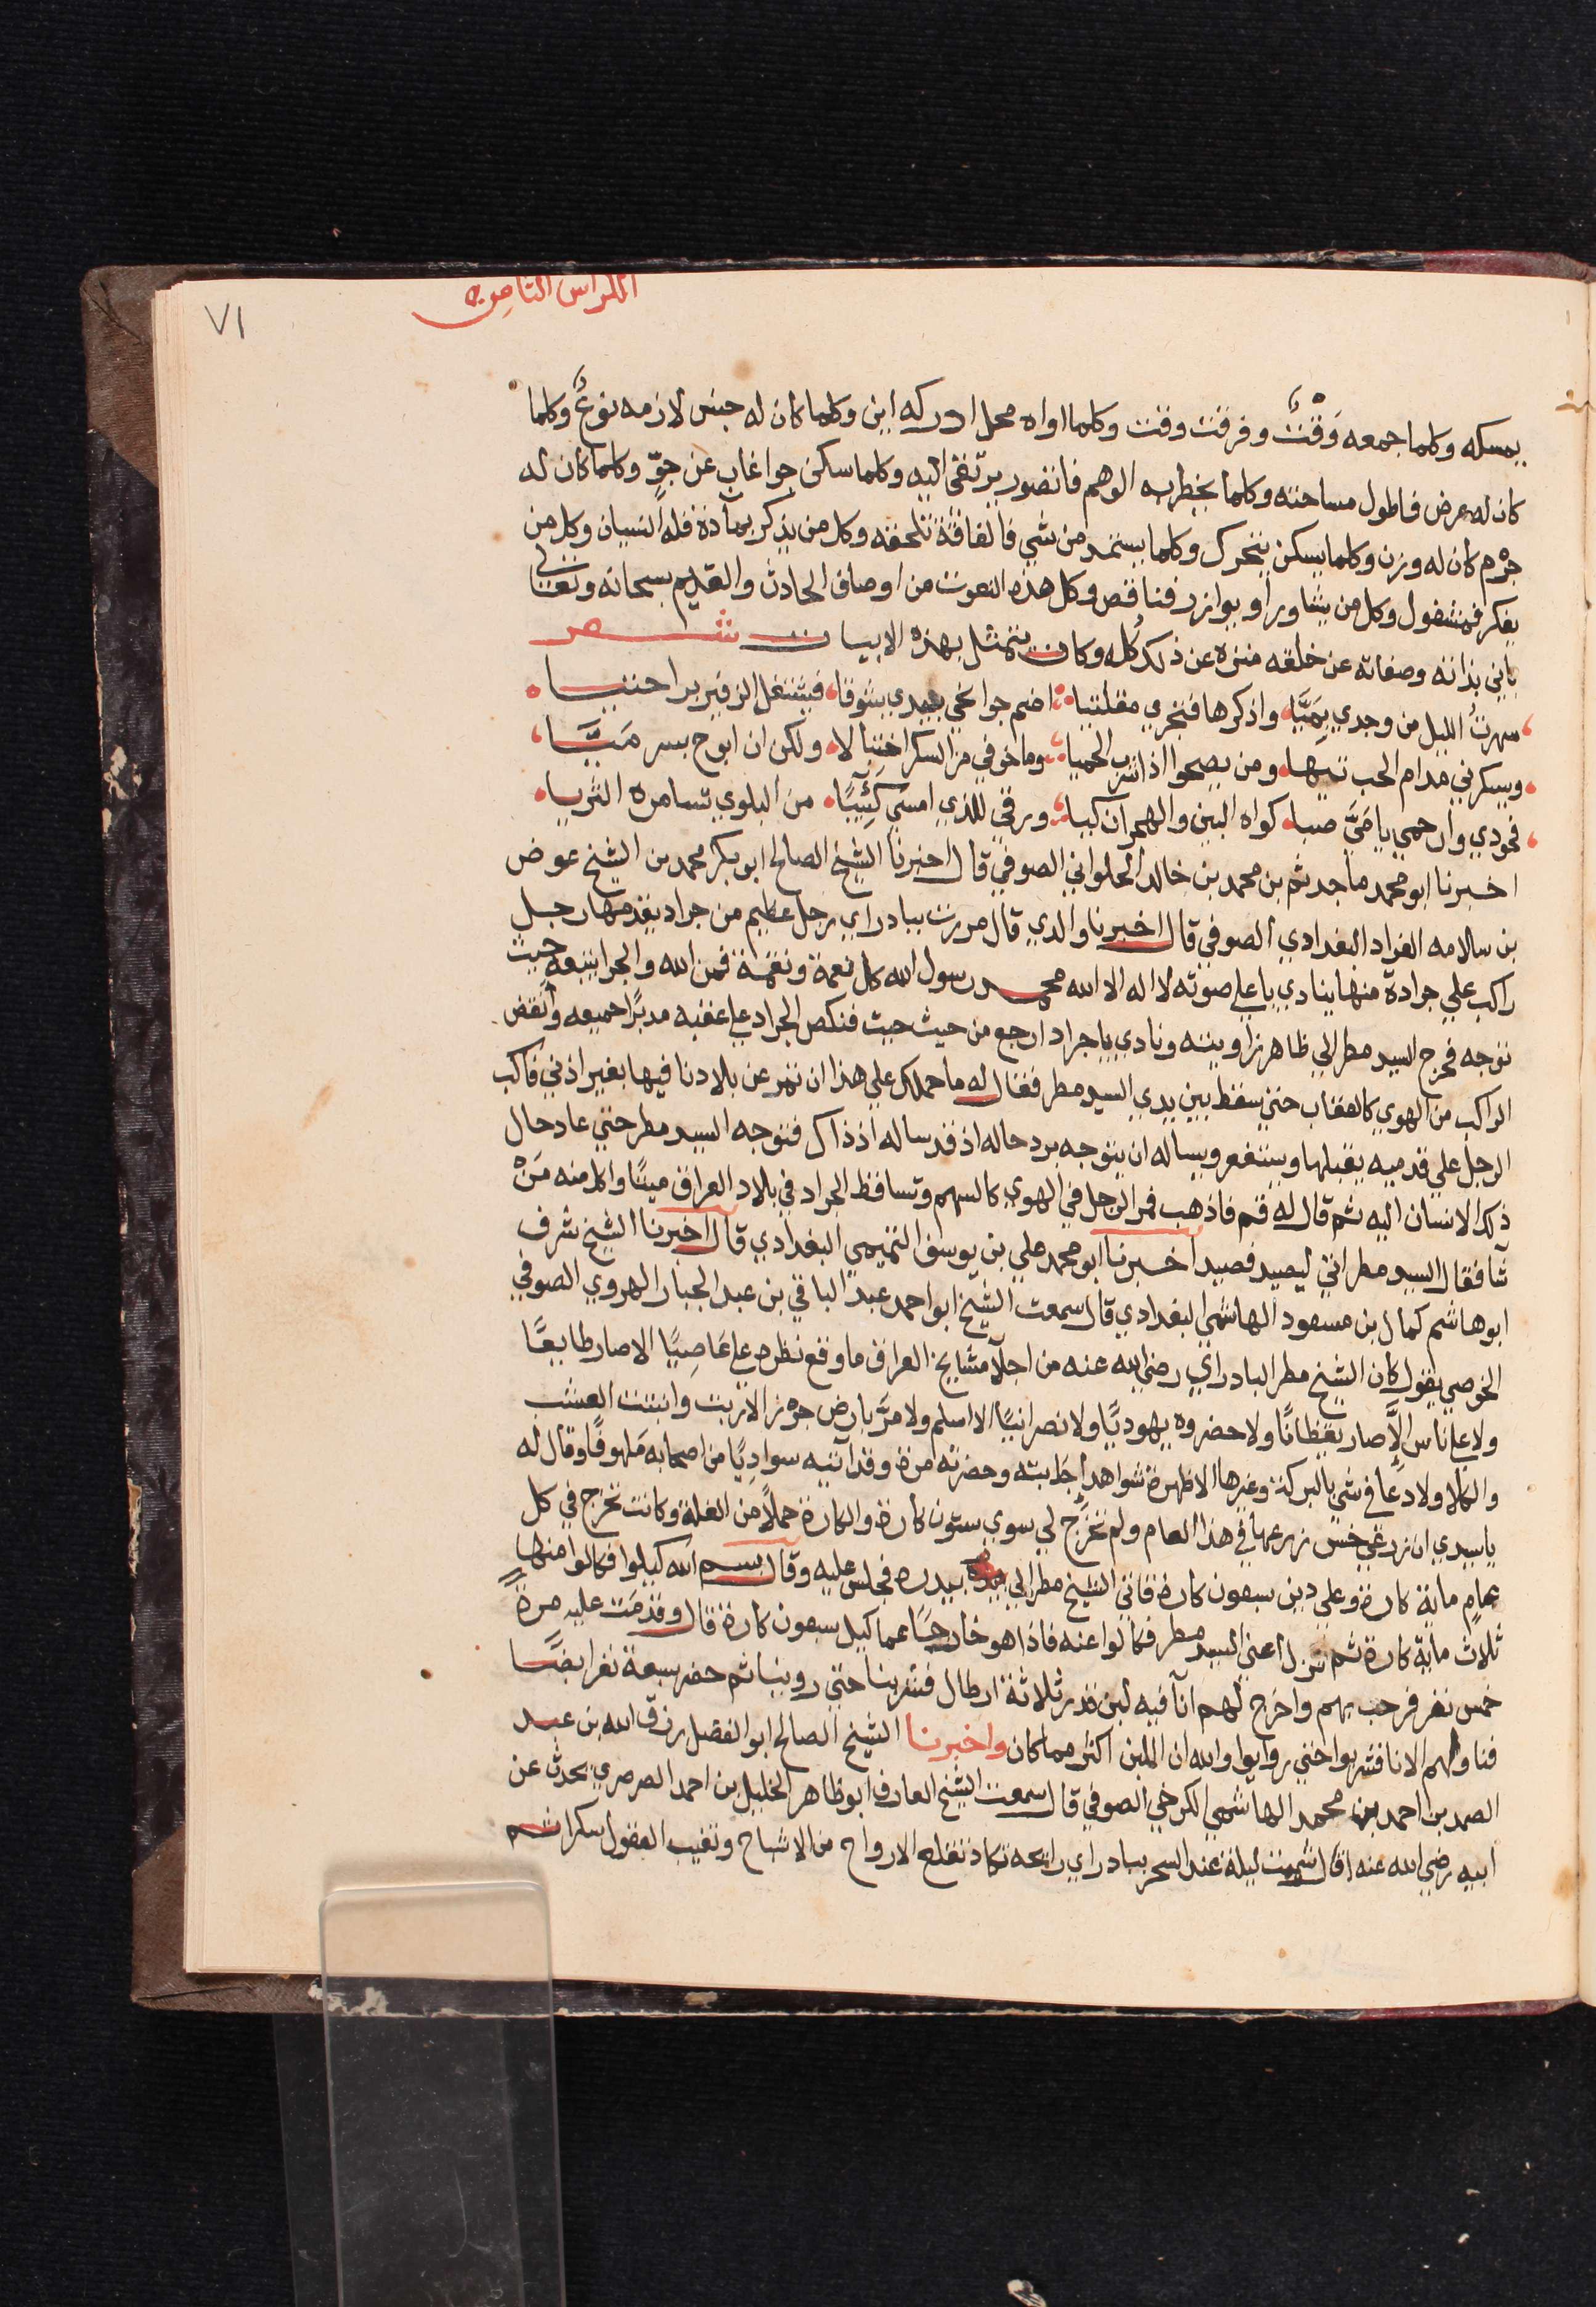 الكراس الثامن
٧١
يمسكه وكلما جمعه وَقْتٌ وفرقت وقت وكلما اواه محل ادركه اين وكلما كان له جنس لازمه نوعٌ وكلما
كان له عرض فاطول مساحته وكلما يخطر به الوهم فالتصوير يرتقى اليه وكلما سكن جوا غاب عن جوٍّ وكلما كان له
جرْم كان له وزن وكلما يسكن يتحرك وكلما يستمد من شي فالفاقة تلحقه وكل من يذكر بمآدة فله النسيان وكل من
يفكر فمشغول وكل من يشاور او يوازر فناقص وكل هذه النعوت من اوصاف الحادث والقديم سبحانه وتعالى
باين بذاته وصفاته عن خلقه منزه عن ذلك كُله وكان يتمثل بهذه الابيات شعر
سهرتُ الليل من وجدي بِمَيَّا واذكرها فتجري مقلتيا اضم جوانحي بيدي شوقا فيشتغل الزفير براحتيا
ويسكرني مدام الحب تيها ومن يصحوا اذا شرب الحميا وما خوفي من السكر اختبالا ولكن ان ابوح بسر مَيَّا
فجودي وارحمي يا مَيَّ صبا كواه البين والهجران كيا ورقي للذي امسَي كَئِيبًا من البلوي تسامره الثريا
اخبرنا ابو محمد ماجد بن محمد بن خالد الحلواني الصوفي قال اخبرنا الشيخ الصالح ابو بكر محمد بن الشيخ عوض
بن سلامه الغراد البغدادي الصوفي قال اخبرنا والدي قال مررت ببادراي رجل عظيم من جراد يقدمها رجل
راكب علي جرادة منها ينادي باعلي صوته لا اله الا الله محمد رسول الله كل نعمة ونقمة فمن الله والجرا يتبعه حيث
توجه فخرج السيد مطر الي ظاهر زاويته ونادي يا جراد ارجع من حيث جيت فنكص الجراد علي عقبه مدبرًا جميعه وانقض
الراكب من الهوي كالعقاب حتي سقط بين يدي السيد مطر فقال له ما حملك علي هذا ان تمر عن بلادنا فيها بغير اذني فاكب
الرجل علي قدميه يقبلها ويستغفر ويساله ان يتوجه برد حاله اذ فقد ساله اذ ذاك فتوجه السيد مطر حتي عاد حال
ذلك الانسان اليه ثم قال له قم فاذهب فمر الرجل في الهوي كالسهم وتساقط الجراد في بلاد العراق ميتًا واكل منه مَنْ
شآ فقال السيد مطر اتي ليصيد فصيد اخبرنا ابو محمد علي بن يوسف التميمي البغدادي قال اخبرنا الشيخ شرف
ابو هاشم كمال بن مسعود الهاشمي البغدادي قال سمعت الشيخ ابو احمد عبد الباقي بن عبد الجبار الهروي الصوفي
الخوصي يقول كان الشيخ مطر البادراي رضي الله عنه من اجلآ مشايخ العراق ما وقع نظره علي عَاصِيًا الا صار طايعًا
ولا علي ناس الَّا صار يقظانًا ولا حضروه يهوديًا ولا نصرانيًا الا اسلم ولا مرَّ بارض جرز الا ربت وانبتت العشب
والكلا ولا دعَا في شي بالبركة وغيرها الا ظهرة شواهد اجابته وحضرته مرة وقد آتيه سوادِيًا من اصحابه مَلهوفًا وقال له
يا سيدي ان زرعي خس زرعها في هذا العام ولم تخرُج لي سوي ستون كارة والكارة حملًا من الغلة وكانت تخرج في كل
عامٍ ماية كارة وعلي دين سبعون كارة فاتي الشيخ مطر الي بيدره فجلس عليه وقال بسم الله كيلوا فكالوا منها
ثلاث ماية كارة ثم نزل اعني السيد مطر فكالوا عنه فاذا هو خارجًا عما كيل سبعون كارة قال وقدمَت عليه مرةً
خمس نفر فرحب بهم واخرج لهم انآ فيه لبن قدر ثلاثة ارطال فشربنا حتي روينا ثم حضر سبعة نفر ايضًا
فناولهم الانا فشربوا حتي رويوا والله ان اللبن اكثر مما كان واخبرنا الشيخ الصالح ابو الفضل رزق الله بن عبد
الصمد بن احمد بن محمد الهاشمي الكرخي الصوفي قال سمعت الشيخ العارف ابو طاهر الخليل بن احمد الصرصري يحدث عن
ابيه رضي الله عنه قال شممت ليلة عند السحر ببادراي رايحه تكاد تقلع الارواح من الاشباح وتغيب العقول سكرا ثم